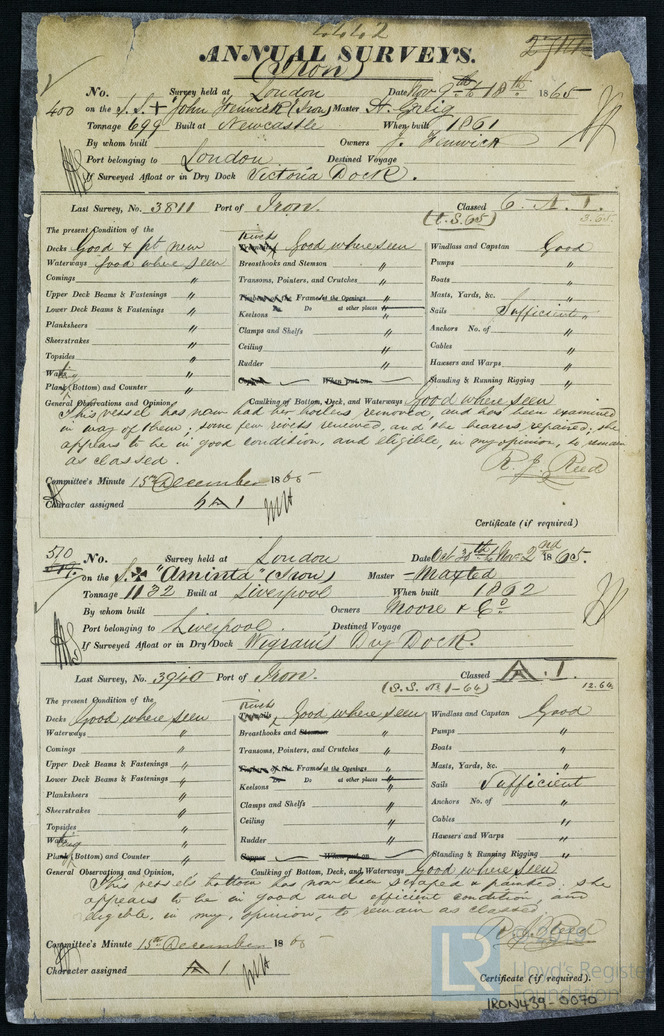 4442
ANNUAL SURVEYS.
(Iron)
No. Survey held at London Date Nov 9th to 18th 1865
400 on the S.S. "John Fenwick" (Iron) Master A. Greig
Tonnage 699 Built at Newcastle When built 1861
By whom built Owners J. Fenwick
Port belonging to London Destined Voyage
If Surveyed Afloat or in Dry Dock Victoria Dock.
Last Survey, No. 3811 Port of Iron. Classed 6. A. 1.
(t.S. 65) 3.65
The present Condition of the
Decks Good & pt new good where seen Windlass and Capstan Good
Waterways good where seen Breasthooks and Stemson " Pumps "
Comings " Transoms, Pointers, and Crutches " Boats "
Upper Deck Beams & Fastenings " Timbers of the Frames at the Openings " Masts, Yards, &c. "
Lower Deck Beams & Fastenings " Do at other places Sails Sufficient
Planksheers " Keelsons " Anchors No. of "
Sheerstrakes " Clamps and Shelfs " Cables "
Topsides " Ceiling " Hawsers and Warps "
" Rudder " Standing & Running Rigging "
Plating (Bottom) and Counter " When put on
General Observations and Opinion, Caulking of Bottom, Deck, and Waterways Good where seen
This vessel has now had her boilers removed, and has been examined
in way of them; some few rivets renewed, and the bearers repaired; she
appears to be in good condition, and eligible, in my opinion, to remain
as classed.
R. J. Reed
Committee's Minute 15th December 1865
Character assigned 6 A 1
Certificate (if required)
510 No. Survey held at London Date Oct 30th to Nov 2nd 1865.
on the S. "Aminta" (Iron) Master Maxted
Tonnage 1132 Built at Liverpool When built 1862
By whom built Owners Moore & Co
Port belonging to Liverpool. Destined Voyage
If Surveyed Afloat or in Dry Dock Wigram's Dry Dock.
Last Survey, No. 3940 Port of Iron. Classed A. 1
(S.S. No 1-64) 12.64
The present Condition of the
Decks Good where seen Good where seen Windlass and Capstan Good
Waterways " Breasthooks and Stemson " Pumps "
Comings " Transoms, Pointers, and Crutches " Boats "
Upper Deck Beams & Fastenings " Frames at the Openings " Masts, Yards, &c. "
Lower Deck Beams & Fastenings " Do at other places Sails Sufficient
Planksheers " Keelsons " Anchors No. of "
Sheerstrakes " Clamps and Shelfs " Cables "
Topsides " Ceiling " Hawsers and Warps "
" Rudder " Standing & Running Rigging "
Plating (Bottom) and Counter " Copper When put on
General Observations and Opinion, Caulking of Bottom, Deck, and Waterways Good where seen
This vessel's bottom has now been scraped & painted: she
appears to be in good and efficient condition and
eligible, in my opinion, to remain as classed
R. J. Reed
Committee's Minute 15th December 1865
Character assigned A 1
Certificate (if required).
LR Lloyd's Register
Foundation
IRON439-0070